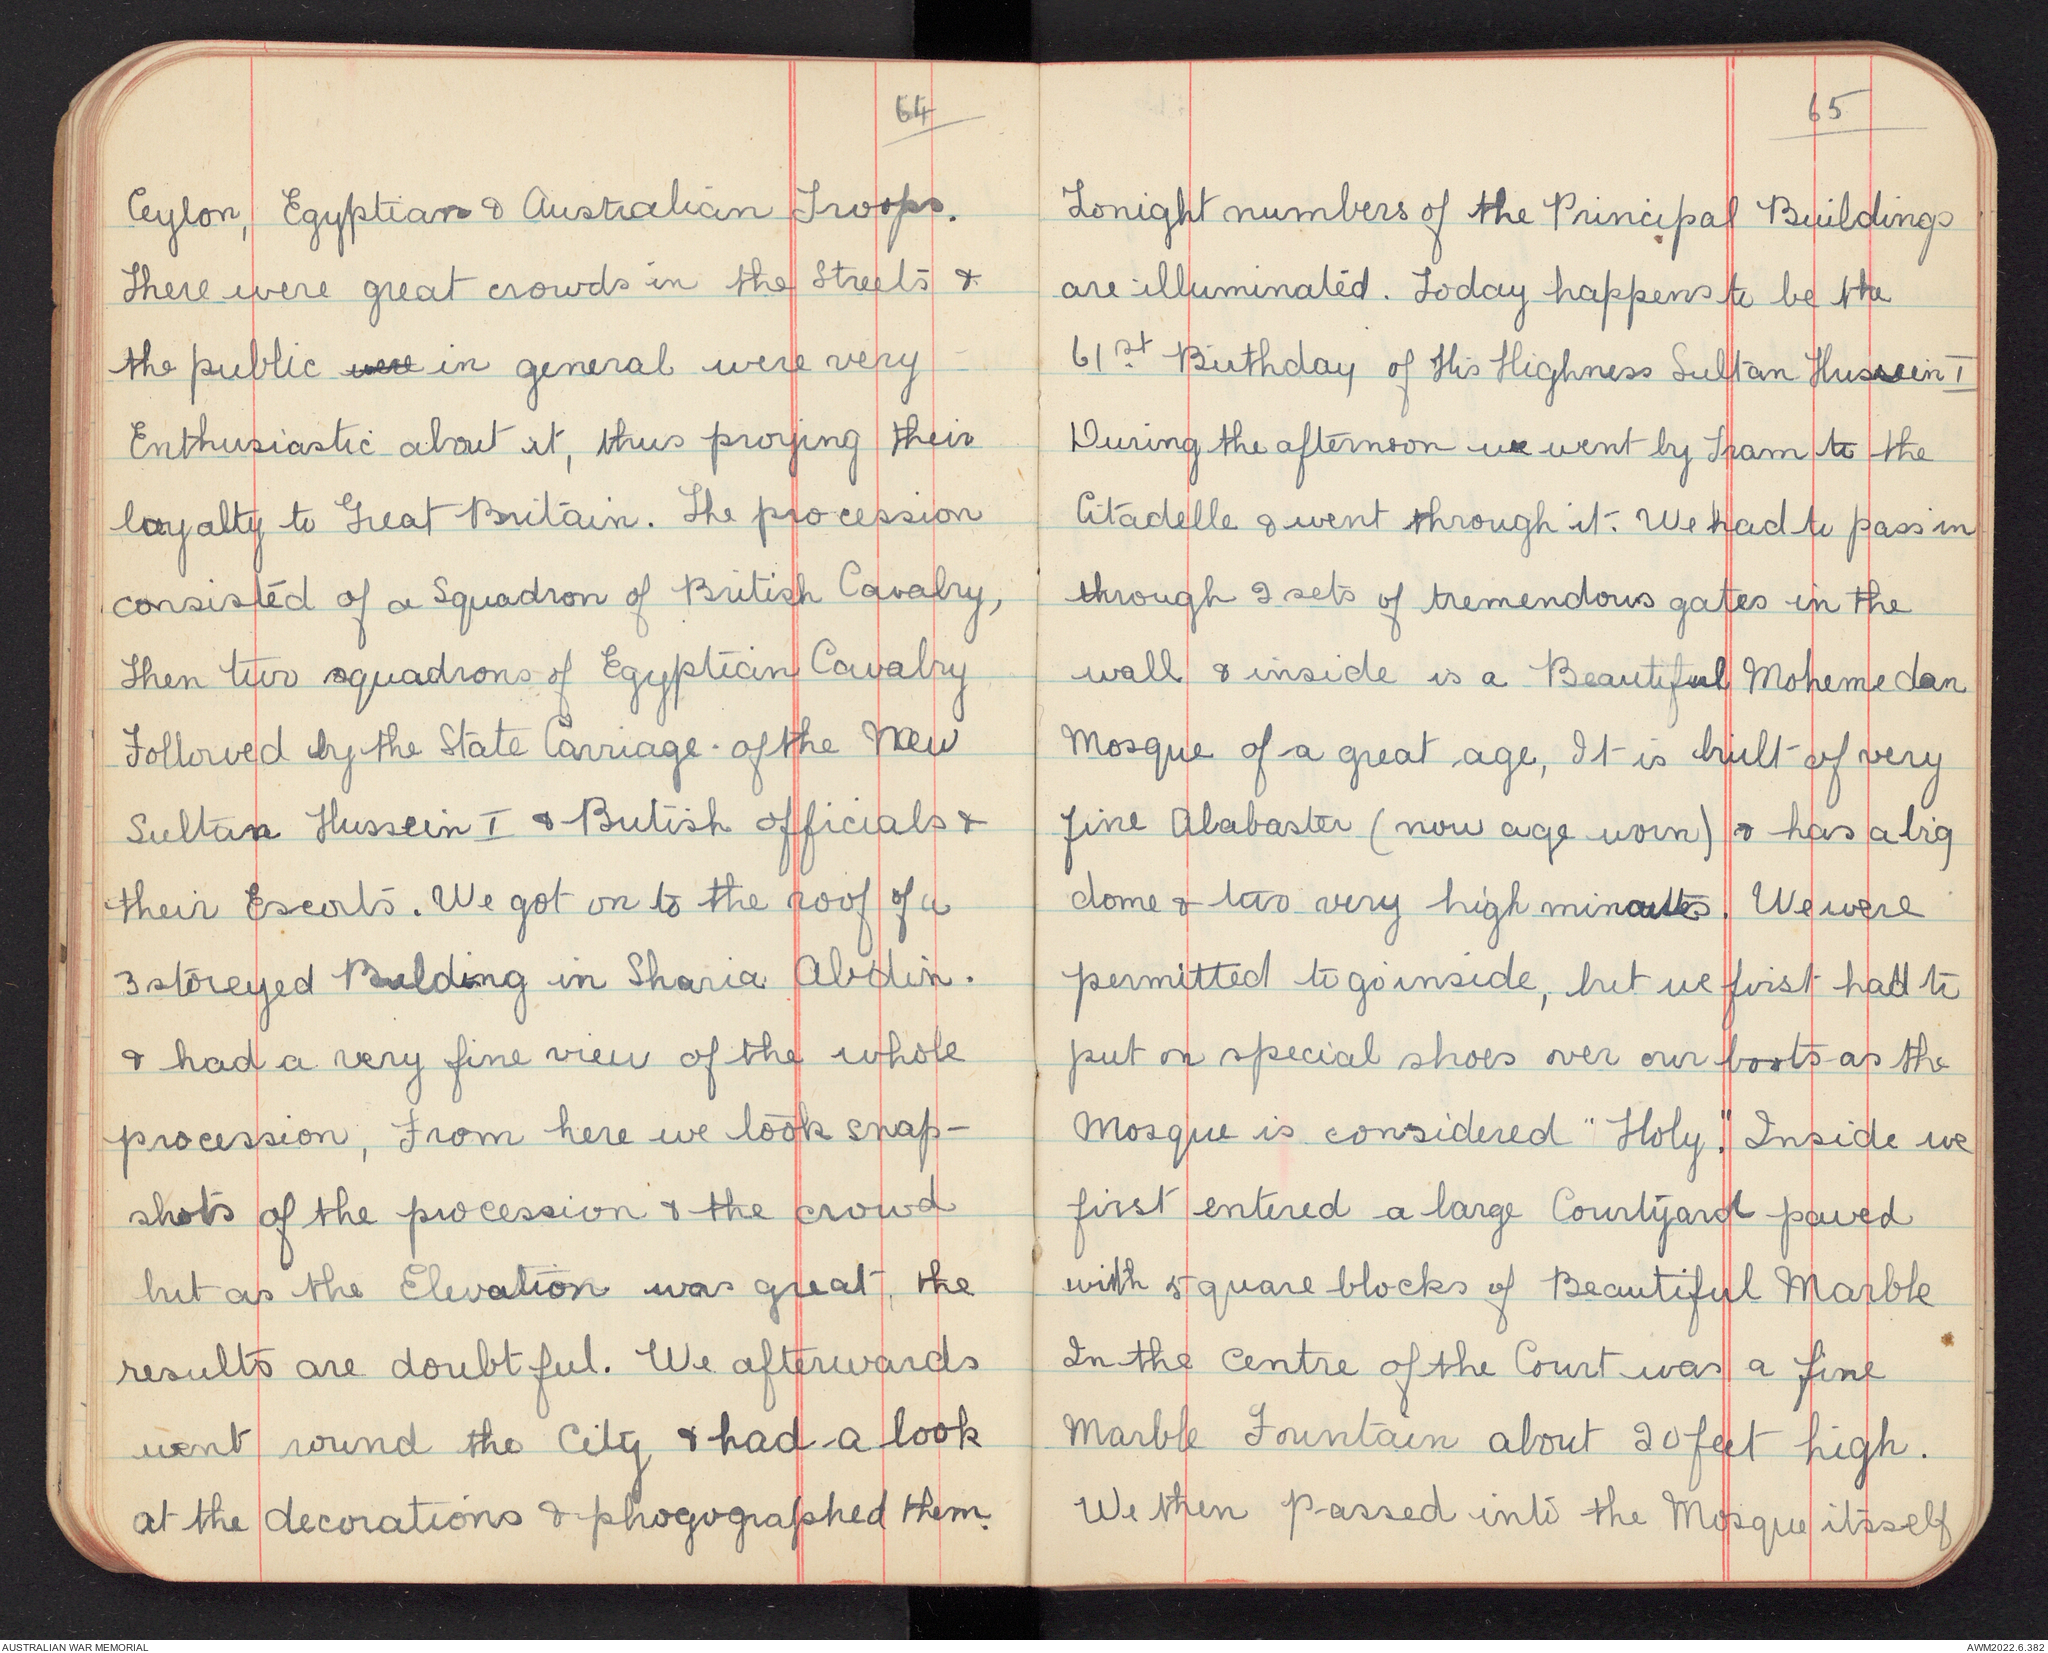 64
Ceylon, Egyptian & Australian Troops.
There were great crowds in the Streets &
the public were in general were very
Enthusiastic about it, thus proving their
loyalty to Great Britain. The procession
consisted of a Squadron of British Cavalry,
Then two squadrons of Egyptian Cavalry
Followed by the State Carriage of the New
Sultan Hussein I & British officials &
their Escorts. We got on to the roof of a
3 storeyed Building in Sharia Abdin.
& had a very fine view of the whole
procession, From here we took snap-
shots of the procession & the crowd
but as the Elevation was great, the
results are doubtful. We afterwards
went round the City & had a look
at the decorations & phogographed them.
65
Tonight numbers of the Principal Buildings
are illuminated. Today happens to be the
61st Birthday of His Highness Sultan Hussein I
During the afternoon we went by Tram to the
Citadelle & went through it. We had to pass in
through 2 sets of tremendous gates in the
wall & inside is a Beautiful Mohemedan
Mosque of a great age, It is built of very
fine Alabaster (now age worn) & has a big
dome & two very high . We were
permitted to go inside, but we first had to
put on special shoes over our boots as the
Mosque is considered "Holy". Inside we
first entered a large Courtyard paved
with square blocks of Beautiful Marble
In the centre of the Court was a fine
Marble Fountain about 20 feet high.
We then passed into the Mosque itsself
AUSTRALIAN WAR MEMORIAL
AWM2022.6.382